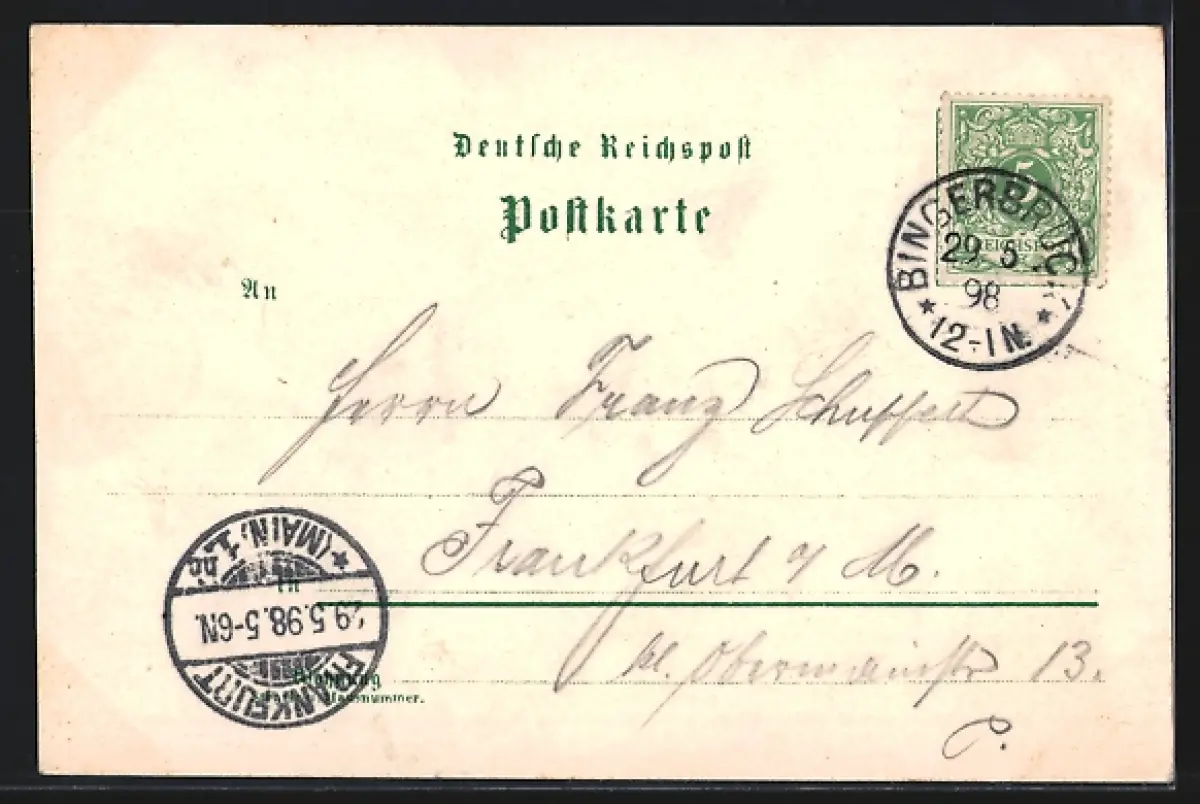 Deutsche Reichspost
Postkarte
5
REICHSPOST
BINGERBRÜCK
29 5
98
12-1N.
An
Herrn Franz
Frankfurt a/M.
kl. Obermainstr 13.
P.
FRANKFURT
(MAIN) 1.
29.5.98.5-6N.
Wohnung